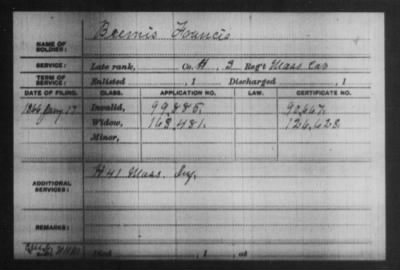 Bemis Francis
NAME OF SOLDIER:
SERVICE: Late rank, Co. H, 3 Reg't Mass Cav
TERM OF SERVICE: Enlisted , 1 Discharged , 1
DATE OF FILING. CLASS. APPLICATION NO. LAW. CERTIFICATE NO.
1866 Jany 17 Invalid, 99,885. 90,667.
Widow, 163,481. 126,628.
Minor,
ADDITIONAL SERVICES: H 41 Mass. Inf.
REMARKS:
, 1 , at